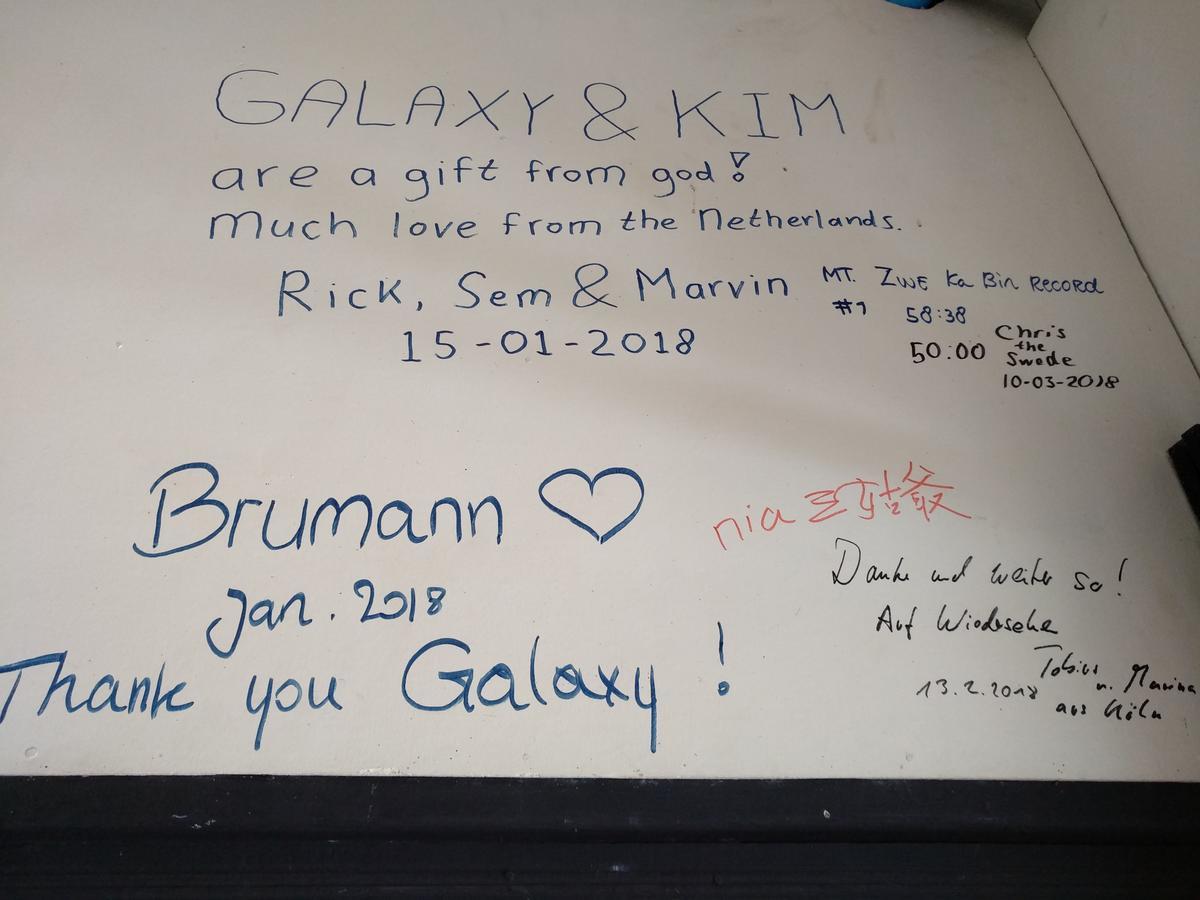 GALAXY & KIM
are a gift from god!
Much love from the Netherlands.
Rick, Sem & Marvin
15-01-2018
MT. ZWE Ka Bin RECORD
#1 58:38
50:00 Chris
the
Swede
10-03-2018
Brumann ♡
Jan. 2018
Thank you Galaxy!
nia
Danke und weiter so!
Auf Wiedersehen
Tobias
u. Marina
aus Köln
13.2.2018